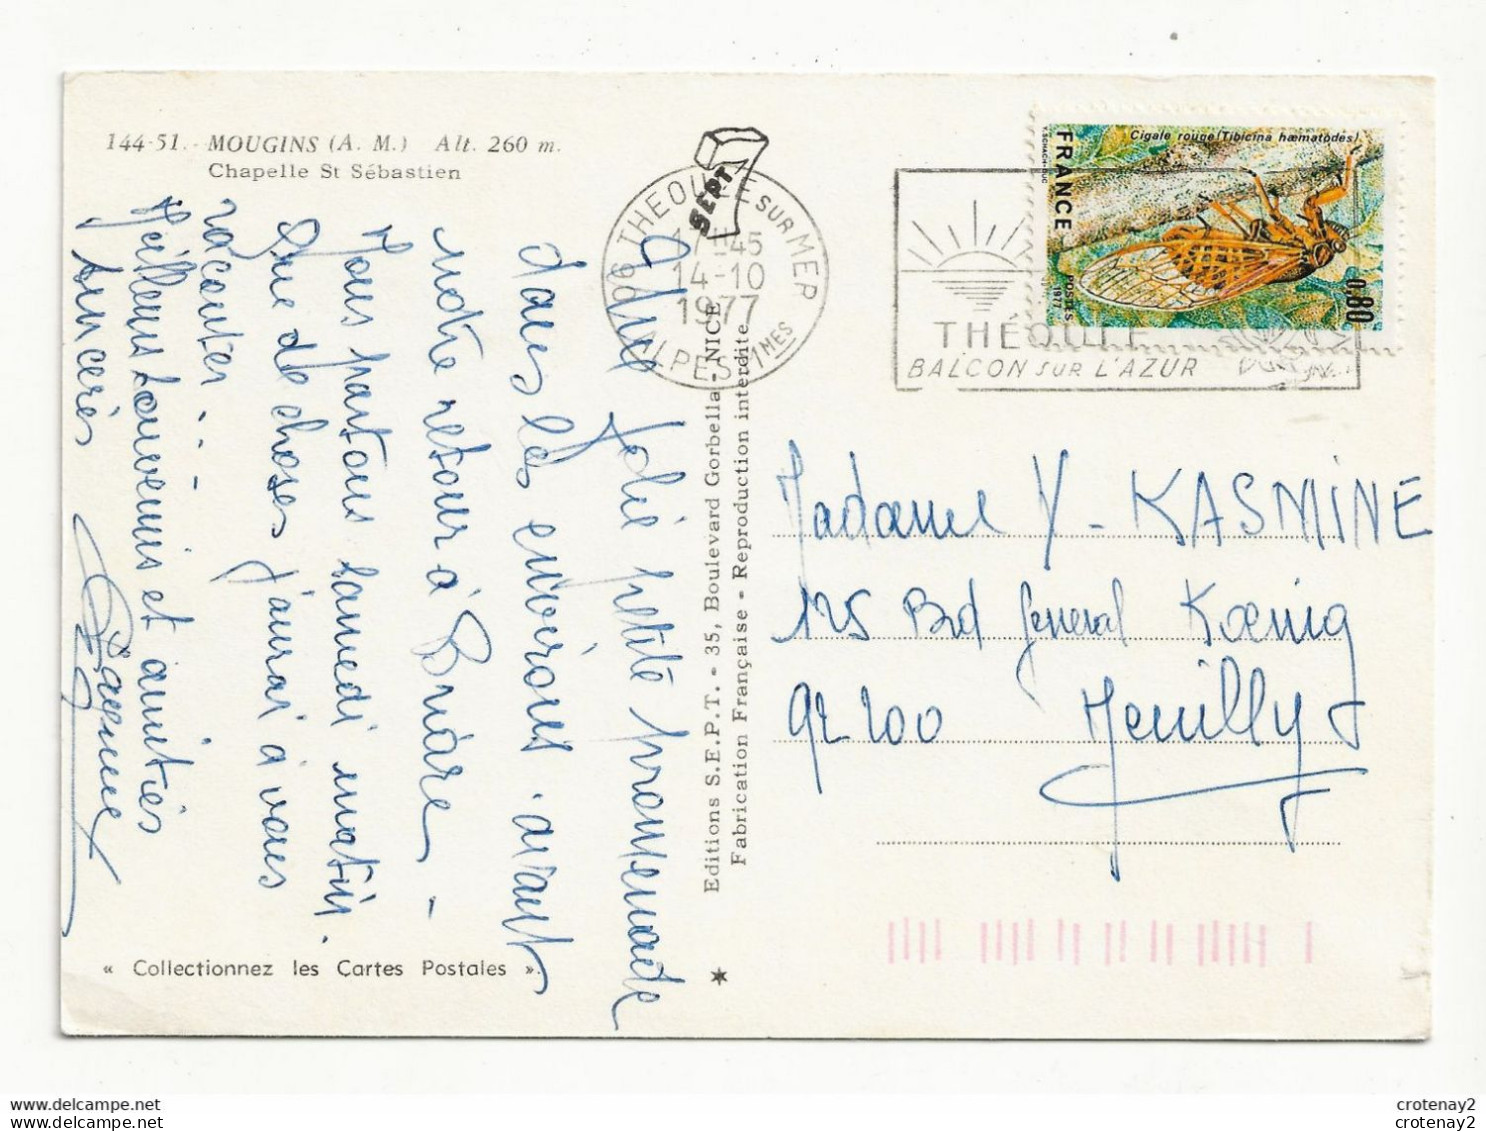 144-51. - MOUGINS (A. M.) Alt. 260 m.
Chapelle St Sébastien
SEPT
06 THEOULE SUR MER
17H45
14-10
1977
ALPES Mmes
THÉOULE
BALCON SUR L'AZUR
Cigale rouge (Tibicina hæmatodes)
FRANCE
0,80
POSTES
1977
jolie petite promenade
dans les environs avant
notre retour à Briare -
Nous partons samedi matin.
Que de choses j'aurai à vous
raconter . . .
Meilleurs souvenirs et amitiés
sincères
Editions S.E.P.T. - 35, Boulevard Gorbella - NICE
Fabrication Française - Reproduction interdite
Madame Y - KASMINE
125 Bd General Kœnig
92200 Neuilly
« Collectionnez les Cartes Postales ».
crotenay2
crotenay2